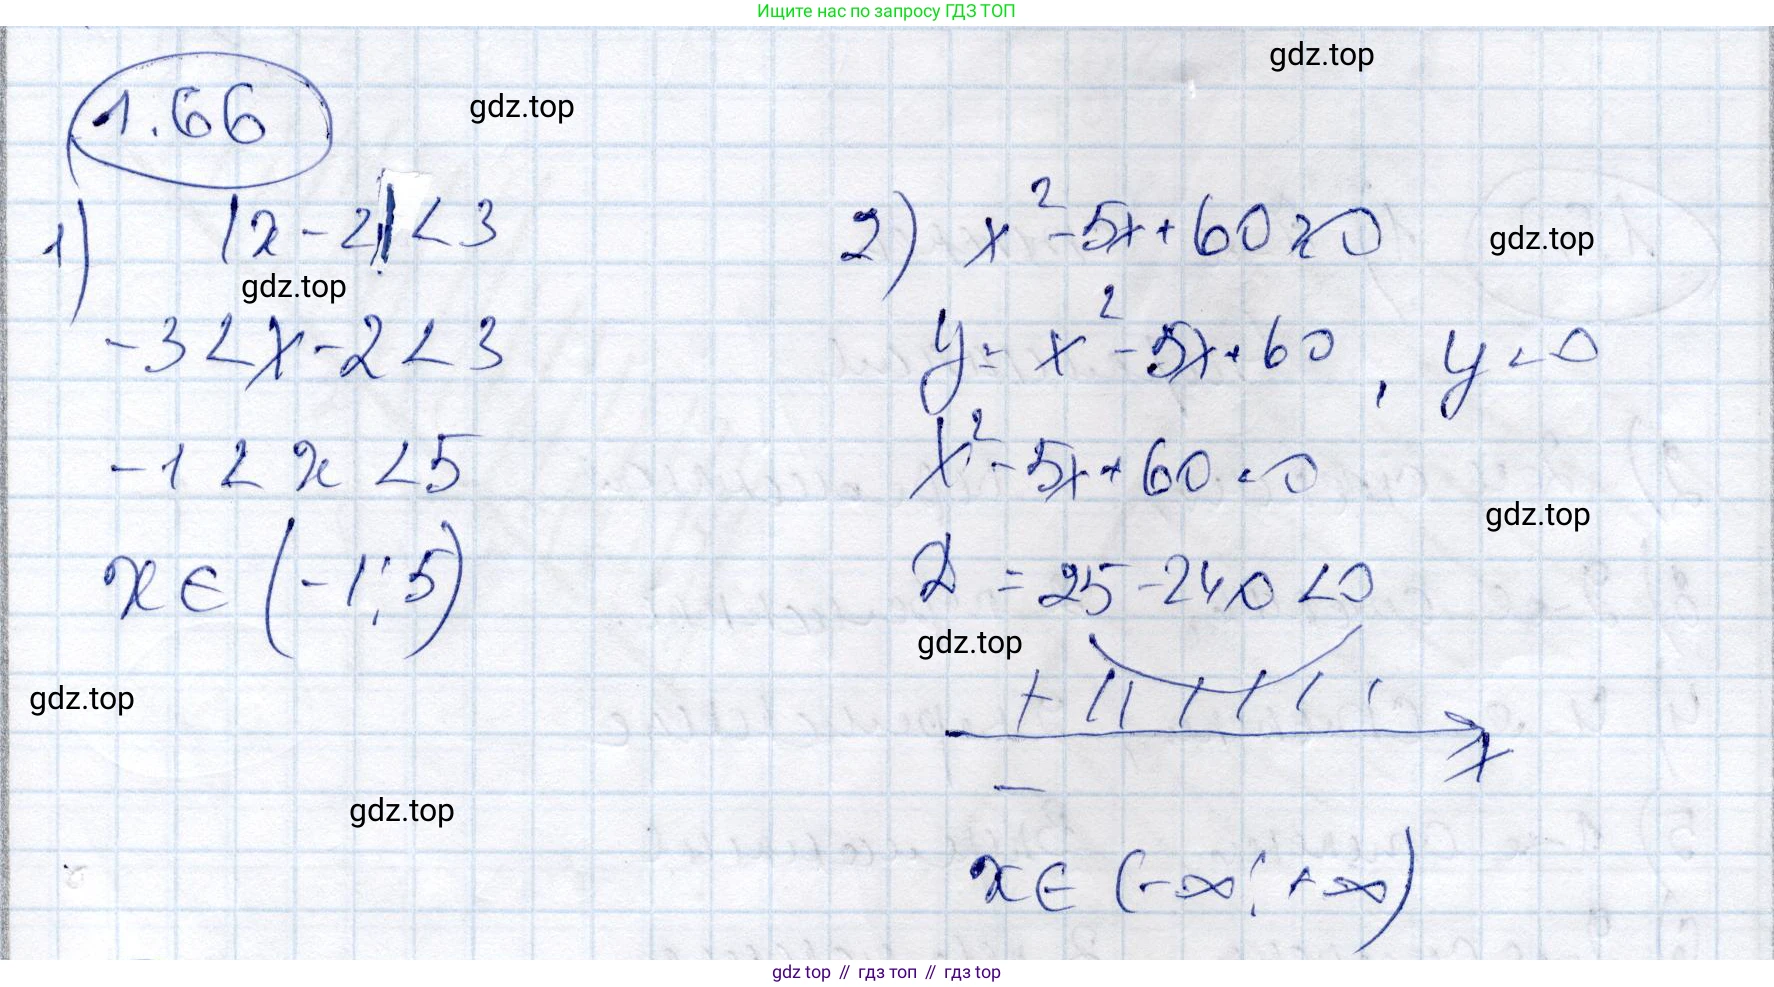 Ищите нас по запросу ГДЗ ТОП
gdz.top
1.66
gdz.top
1) |x-2|<3
gdz.top
-3<x-2<3
-1<x<5
x∈(-1;5)
gdz.top
gdz.top
2) x²-5x+60>0
gdz.top
y=x²-5x+60, y=0
x²-5x+60=0
gdz.top
D=25-240<0
gdz.top
+
x
−
x∈(-∞;+∞)
gdz top // гдз топ // гдз top